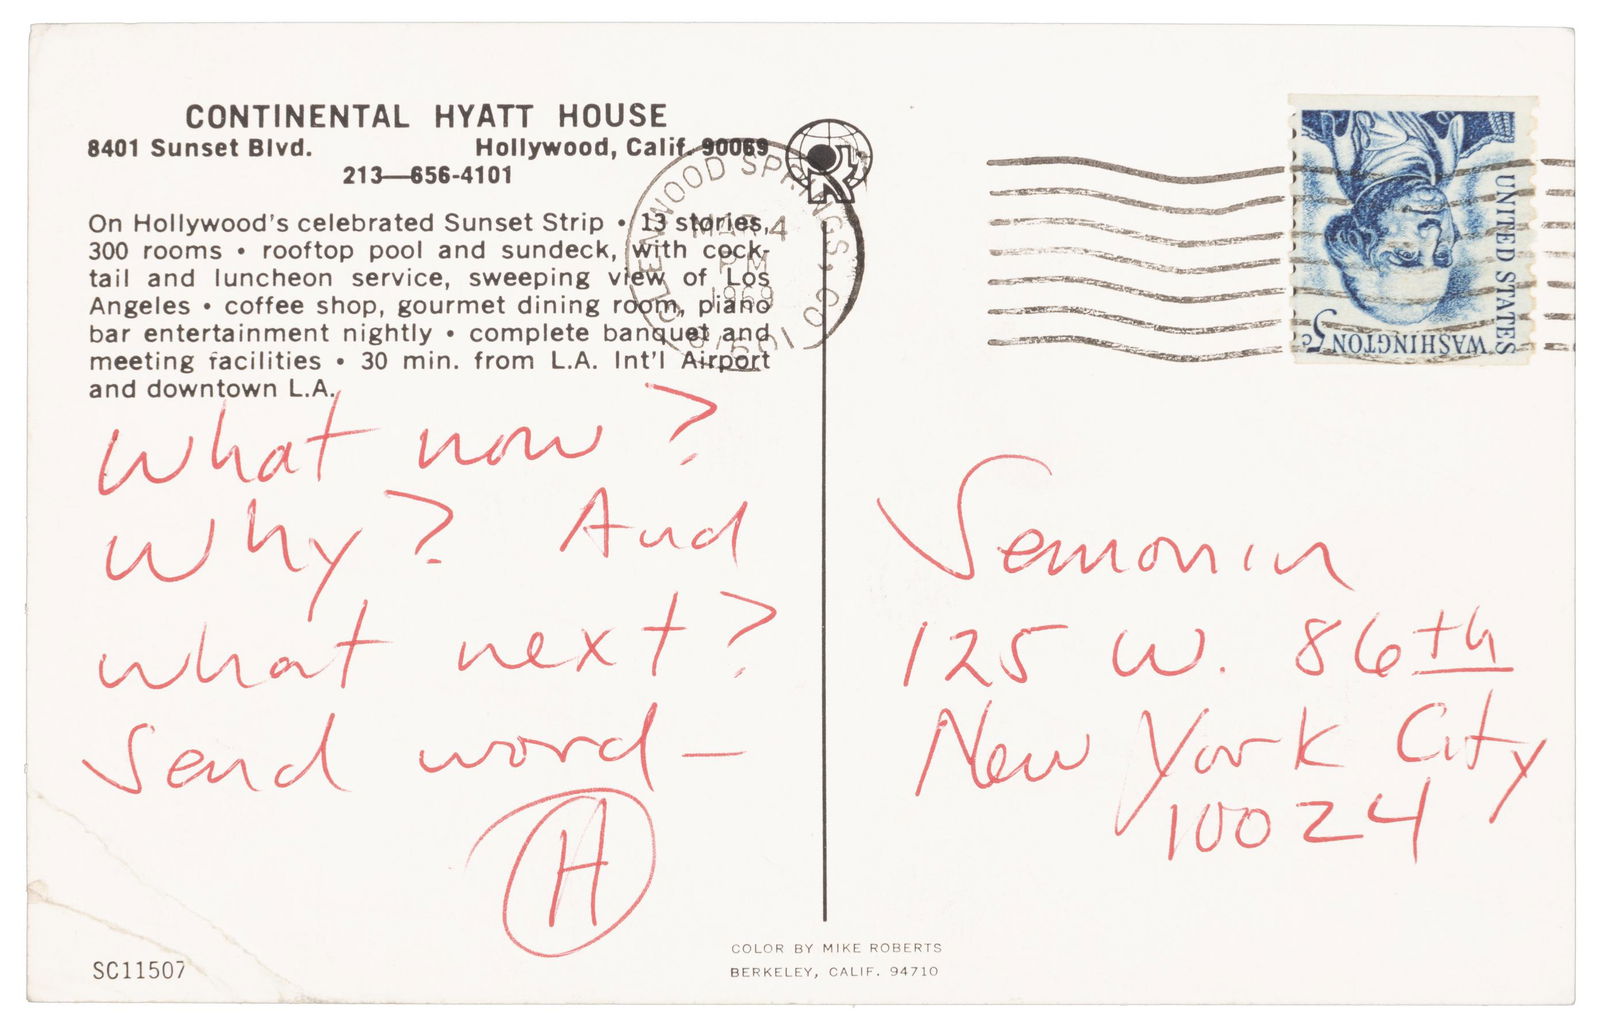 CONTINENTAL HYATT HOUSE
8401 Sunset Blvd. Hollywood, Calif. 90069
213—656-4101
On Hollywood's celebrated Sunset Strip • 13 stories,
300 rooms • rooftop pool and sundeck, with cock-
tail and luncheon service, sweeping view of Los
Angeles • coffee shop, gourmet dining room, piano
bar entertainment nightly • complete banquet and
meeting facilities • 30 min. from L.A. Int'l Airport
and downtown L.A.
What now?
Why? And
what next?
Send word—
H
SC11507
GLENWOOD SPRINGS, CO
MAR 4
PM
1969
81601
COLOR BY MIKE ROBERTS
BERKELEY, CALIF. 94710
UNITED STATES
WASHINGTON
5c
Semonin
125 W. 86th
New York City
10024